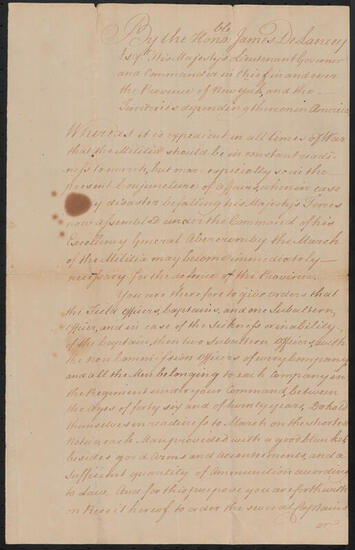 By the Honble James De Lancey
Esqr. His Majesty's Lieutenant Governor
and Commander in Chief in and over
the Province of New York and the
Territories depending thereon in America
Whereas it is expedient in all times of War
that the Militia should be in constant readi
ness to march, but more especially so in the
present Conjuncture of affairs, when in case
disaster befalling his Majesty's Forces
now assembled under the Command of his
Excellency General Abercromby the March
of the Militia may become immediately
necessary for the defence of the Province.
You are therefore to give orders that
the Field Officers, Captains, and one Subaltern
Officer, and in case of the Sickness or inability
of the Captain, then two Subaltern Officers, with
the non Commission Officers of every Company
and all the Men belonging to each Company in
the Regiment under your Command, between
the Ages of forty six and of twenty years, Do hold
themselves in readiness to March on the shortest
Notice, each Man provided with a good blanket
besides good Arms and accoutrements, and a
Sufficient quantity of Ammunition according
to Law. And for this purpose you are forthwith
on Receipt hereof to order the several Captains
or